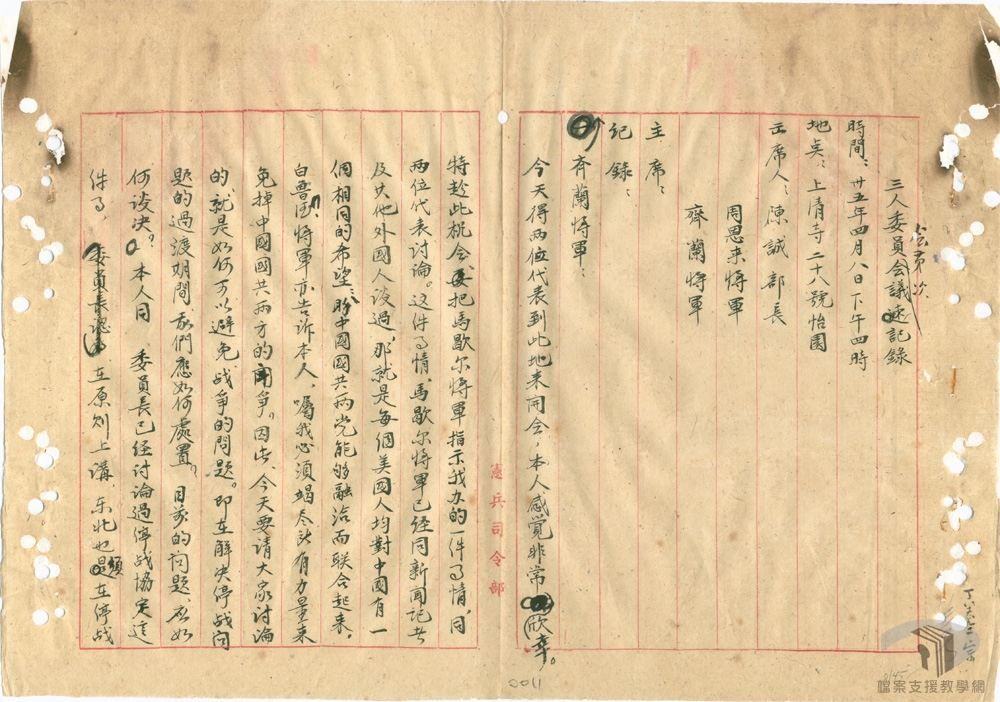 三人委員会議速記錄
会第 次
時間：卅五年四月八日下午四時
地奌：上清寺二十八號怡園
出席人：陳誠部長
周恩来将軍
齊蘭将軍
主席：
记錄：
齐蘭将軍：
今天得两位代表到此地来開会，本人感覺非常欣幸。
特趁此机会要把馬歇尔将軍指示我办的一件事情，同
两位代表讨論。这件事情，馬歇尔将軍已经同新闻记者
及其他外國人谈過，那就是每個美國人均對中國有一
個相同的希望：盼中國國共两党能够融洽而联合起来。
白鲁德将軍亦告诉本人，囑我必须竭尽所有力量来
免掉中國國共两方的鬥争。因此，今天要请大家讨論
的，就是如何可以避免战争的問题。即在解决停战问
题的過渡期間我們應如何處置。目前的问题，应如
何谈决。本人同 委員長已经讨論過停战協定这
件事，委員長認為在原则上講，东北也須在停战
憲兵司令部
0011
檔案支援教學網